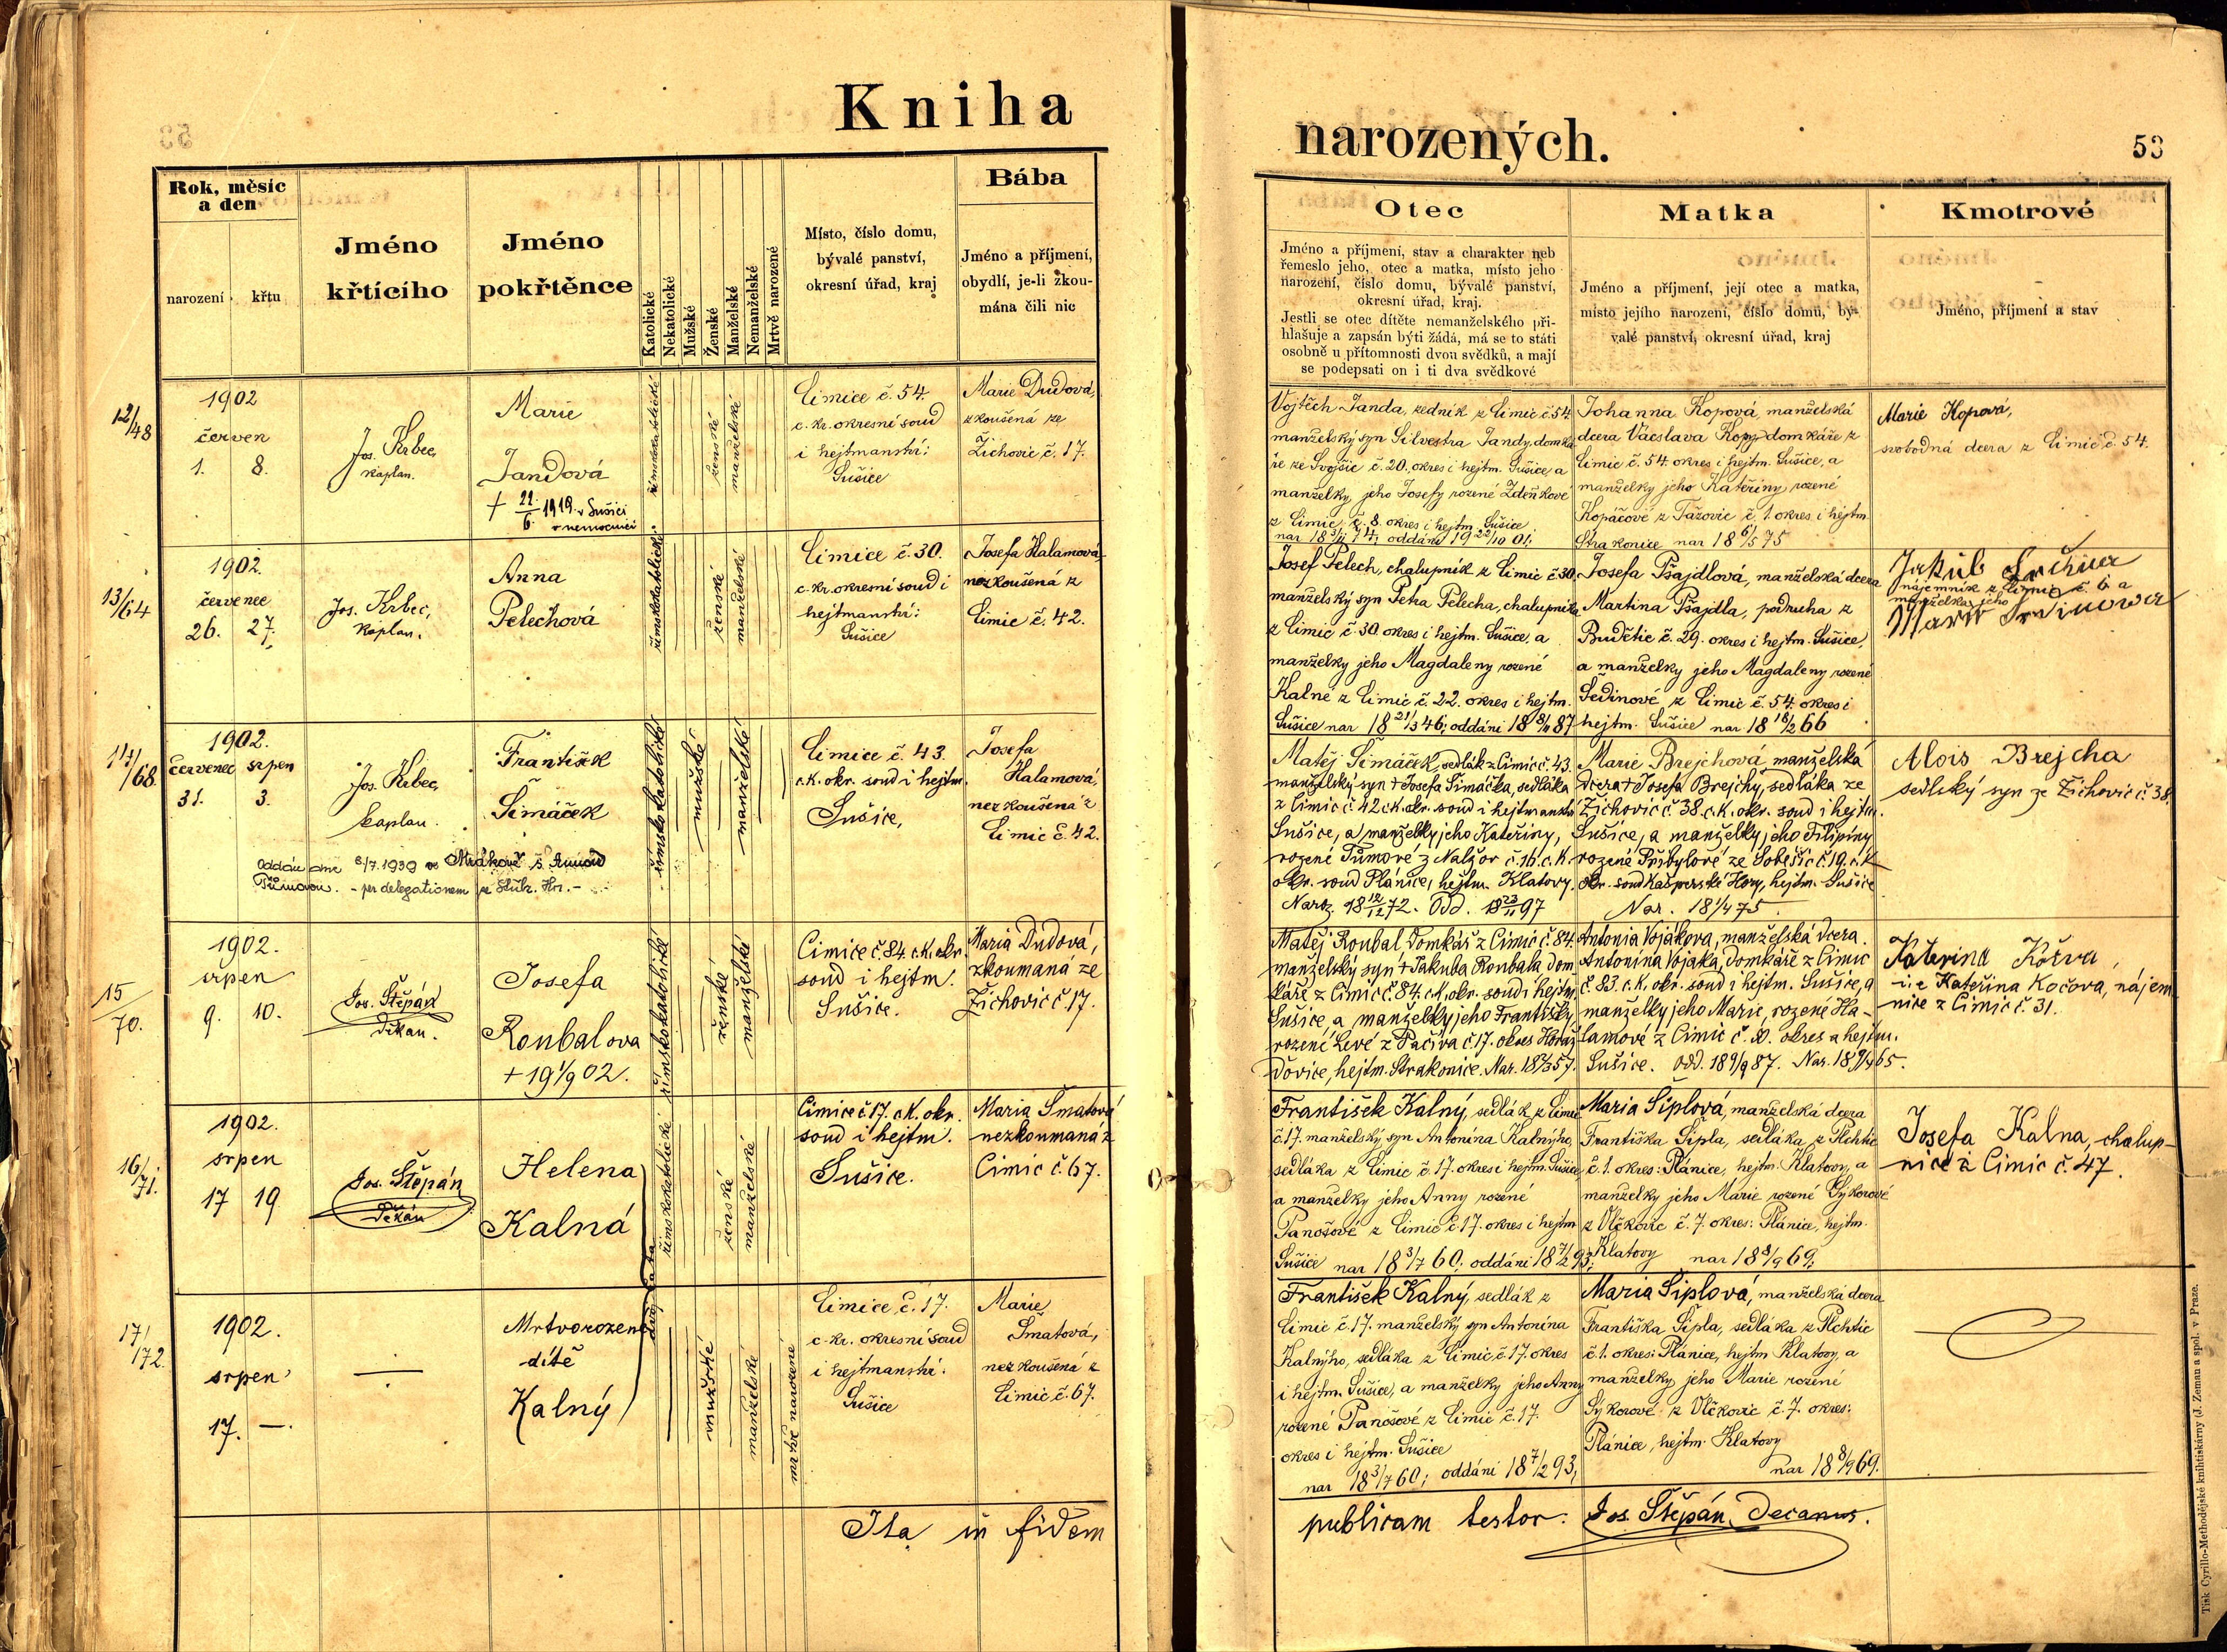 Kniha
narozených.
53
Rok, měsíc
a den
narození
křtu
Jméno
křtícího
Jméno
pokřtěnce
Katolické
Nekatolické
Mužské
Ženské
Manželské
Nemanželské
Mrtvě narozené
Místo, číslo domu,
bývalé panství,
okresní úřad, kraj
Bába
Jméno a příjmení,
obydlí, je-li zkou-
mána čili nic
Otec
Jméno a příjmení, stav a charakter neb
řemeslo jeho, otec a matka, místo jeho
narození, číslo domu, bývalé panství,
okresní úřad, kraj.
Jestli se otec dítěte nemanželského při-
hlašuje a zapsán býti žádá, má se to státi
osobně u přítomnosti dvou svědků, a mají
se podepsati on i ti dva svědkové
Matka
Jméno a příjmení, její otec a matka,
místo jejího narození, číslo domu, bý-
valé panství, okresní úřad, kraj
Kmotrové
Jméno, příjmení a stav
12/48
1902
červen
1. 8.
Jos. Krbec,
kaplan.
Marie
Jandová
+ 21/6. 1919 v Sušici
v nemocnici
římskokatolické
ženské
manželské
Cimice č. 54.
c. kr. okresní soud
i hejtmanství:
Sušice
Marie Dudová,
zkoušená ze
Žichovic č. 17.
Vojtěch Janda, zedník z Cimic č 54
manželský syn Silvestra Jandy, domká
ře ze Svojšic č. 20. okres i hejtm. Sušice a
manželky jeho Josefy rozené Zdeňkové
z Cimic, č. 8. okres i hejtm. Sušice
Johanna Kopová, manželská
dcera Václava Kopy domkáře z
Cimic č. 54. okres i hejtm. Sušice, a
manželky jeho Kateřiny rozené
Kopáčové z Tažovic č. 1. okres i hejtm.
Strakonice nar 18 6/5 75
Marie Kopová,
svobodná dcera z Cimic č. 54.
13/64
1902.
červenec
26. 27.
Jos. Krbec,
kaplan.
Anna
Pelechová
římskokatolické
ženské
manželské
Cimice č. 30.
c. kr. okresní soud i
hejtmanství:
Sušice
Josefa Halamová,
nezkoušená z
Cimic č. 42.
Josef Pelech, chalupník z Cimic č 30
manželský syn Petra Pelecha, chalupníka
z Cimic č. 30. okres i hejtm. Sušice, a
manželky jeho Magdaleny rozené
Kalné z Cimic č. 22. okres i hejtm.
Sušice nar 18 21/3 46; oddáni 18 87
Josefa Pšajdlová, manželská dcera
Martina Pšajdla, podruha z
Budětic č. 29. okres i hejtm. Sušice,
a manželky jeho Magdaleny rozené
Šedinové z Cimic č. 54. okres i
hejtm. Sušice nar 18 18/2 66
Jakub
nájemník z Cimic č. 6 a
manželka jeho
14/68.
1902.
červenec srpen
31. 3.
Jos. Krbec,
kaplan.
František
Šimáček
Oddán dne 8/7. 1939 ve Mrákově s Annou
Tůmovou. - per delegationem ze Stříb. Hor. -
římskokatolické
mužské
manželské
Cimice č. 43.
c. k. okr. soud i hejtm.
Sušice,
Josefa
Halamová,
nezkoušená z
Cimic č. 42.
Matěj Šimáček, sedlák z Cimic č. 43.
manželský syn + Josefa Šimáčka, sedláka
z Cimic č. 42 c. k. okr. soud i hejtmanství
Sušice, a manželky jeho Kateřiny,
rozené Tůmové z Nalžov č. 16. c. k.
okr. soud Plánice, hejtm. Klatovy.
Naroz. 18 12/12 72. Odd. 18 23/11 97
Marie Brejchová, manželská
dcera + Josefa Brejchy, sedláka ze
Žichovic č. 38. c. k. okr. soud i hejtm.
Sušice, a manželky jeho Filipíny
rozené Přibylové ze Soběšic č. 19. c. k.
okr. soud Kašperské Hory, hejtm. Sušice
Nar. 18 1/4 75.
Alois Brejcha
sedlský syn ze Žichovic č 38.
15/70.
1902.
srpen
9. 10.
Jos. Štěpán
děkan.
Josefa
Roubalova
+ 19 1/9 02.
římskokatolické
ženské
manželské
Cimice č. 84. c. k. okr.
soud i hejtm.
Sušice.
Maria Dudová,
zkoumaná ze
Žichovic č 17.
Matěj Roubal, domkář z Cimic č. 84.
manželský syn + Jakuba Roubala dom
káře z Cimic č. 84. c. k. okr. soud i hejtm.
Sušice, a manželky jeho Františky
rozené Levé z Pačiva č. 17. okres Horaž
ďovice, hejtm. Strakonice. Nar. 18 57.
Antonia Vojákova, manželská dcera
Antonína Vojáka, domkáře z Cimic
č. 83. c. k. okr. soud i hejtm. Sušice, a
manželky jeho Marie, rozené Ha-
lamové z Cimic č. okres a hejtm.
Sušice. Odd. 18 9/9 87. Nar. 18 65.
Kateřina Kočva,
Kateřina Kočova, nájem
nice z Cimic č. 31.
16/71.
1902.
srpen
17 19
Jos. Štěpán
Děkán
Helena
Kalná
dvojčata
římskokatolické
ženské
manželské
Cimice č 17. c. k. okr.
soud i hejtm.
Sušice.
Maria Šmatová
nezkoumaná z
Cimic č. 67.
František Kalný, sedlák z Cimic
č. 17. manželský syn Antonína Kalnýho,
sedláka z Cimic č. 17. okres i hejtm. Sušice,
a manželky jeho Anny rozené
Panošové z Cimic č. 17. okres i hejtm
Sušice nar 18 3/7 60; oddáni 18 7/2 93;
Maria Šiplová, manželská dcera
Františka Šipla, sedláka z Plchtic
č. 1. okres: Plánice, hejtm. Klatovy, a
manželky jeho Marie rozené Sýkorové
z Vlčkovic č. 7. okres: Plánice, hejtm.
Klatovy nar 18 8/9 69.
Josefa Kalna, chalup-
nice z Cimic č. 47.
17/172.
1902.
srpen
17. —.
—
Mrtvorozené
dítě
Kalný
mužské
manželské
mrtvě narozené
Cimice č. 17.
c. kr. okresní soud
i hejtmanství:
Sušice
Marie
Šmatová,
nezkoušená z
Cimic č. 67.
František Kalný, sedlák z
Cimic č. 17. manželský syn Antonína
Kalnýho, sedláka z Cimic č. 17. okres
i hejtm. Sušice, a manželky jeho Anny
rozené Panošové z Cimic č. 17.
okres i hejtm. Sušice
nar 18 3/7 60; oddáni 18 7/2 93;
Maria Šiplová, manželská dcera
Františka Šipla, sedláka z Plchtic
č. 1. okres: Plánice, hejtm Klatovy, a
manželky jeho Marie rozené
Sýkorové z Vlčkovic č. 7. okres:
Plánice, hejtm. Klatovy
nar 18 8/9 69.
Ita in fidem
publicam testor. Jos. Štěpán, Decanus.
Tisk Cyrillo-Methodějské knihtiskárny (J. Zeman a spol. v Praze.